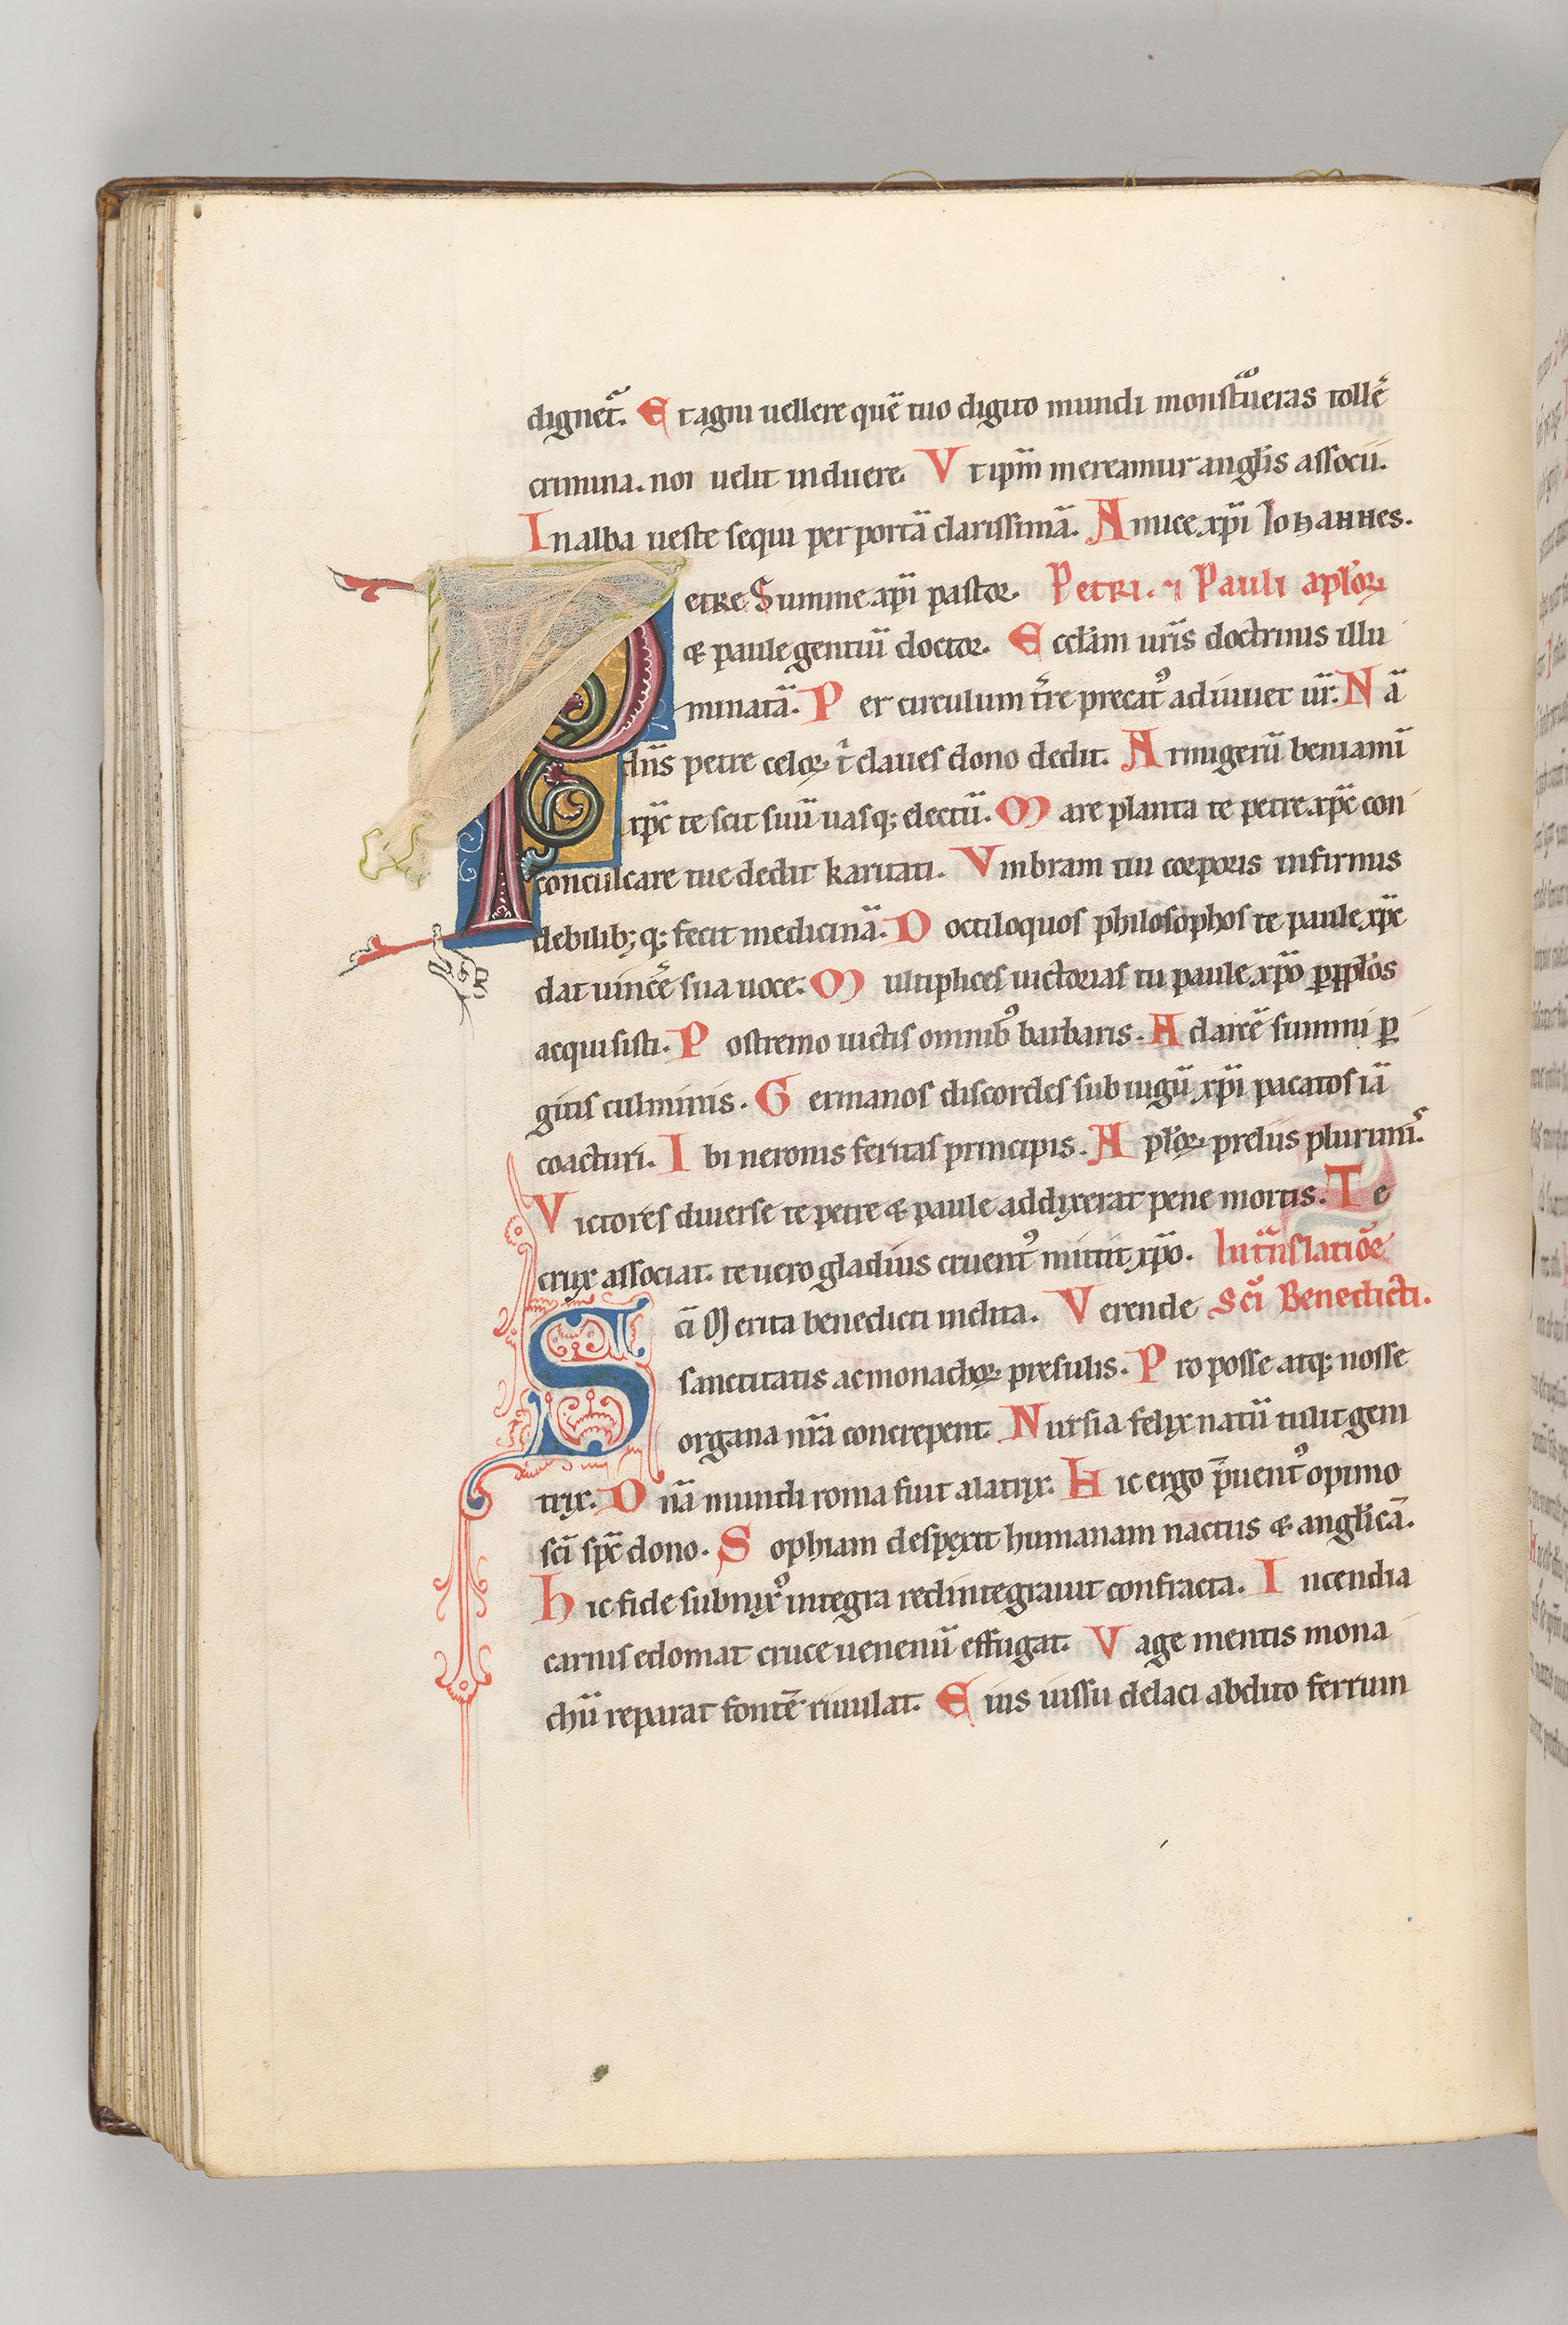 dignet᷑. Et agni uellere quē tuo digito mundi monst᷑ueras tollẽ
crimina. nos uelit induere. Vt ipm̄ mereamur anglis associi.
In alba ueste sequi per portā clarissimā. Amice xp̄i Iohannes.
Petre Summe xp̄i pastor. Petri. ⁊ Pauli apl̄oꝝ
& paule gentiū doctor. Eccl̄am ur̄is doctrinis illu
minatā. Per circulum t̄re precatꝰ adiuuet ur̄. Nā
dn̄s petre celoꝝ t̄ claues dono dedit. Armigerū beniamī
xp̄c te scit suū uasq; electū. Mare planta te petre xp̄c con
conculcare tue dedit karitati. Vmbram tui corporis infirmis
debilib; q; fecit medicinā. Doctiloquos philosophos te paule xp̄c
dat uincẽ sua uoce. Multiplices uictorias tu paule xp̄o ꝑ pp̄los
acquisisti. Postremo uictis omnibꝰ barbaris. Ad arcē summi ꝑ
gitis culminis. Germanos discordes sub iugū xp̄i pacatos iā
coacturi. Ibi neronis feritas principis. Apl̄oꝝ prelus plurimis
Victores diuerse te petre & paule addixerat pene mortis. Te
crux associat. te uero gladius cruentꝰ mittit xp̄o. In t᷑nslatiōe
Sc̄i Merita benedicti inclita. Verende Sc̄i Benedicti.
sanctitatis ac monachoꝝ presulis. Pro posse atq; nosse
organa nr̄a concrepent. Nursia felix natū tulit gem
trix. Dn̄a mundi roma fuit alatrix. Hic ergo p̄uentꝰ opimo
sc̄i sp̄c dono. Sophiam despexit humanam nactus & anglicā.
Hic fide subnixꝰ integra redintegrauit confracta. Incendia
carnis edomat cruce uenenū effugat. Vage mentis mona
chū reparat fontē riuulat. Eius iussu delaci abdito ferrum